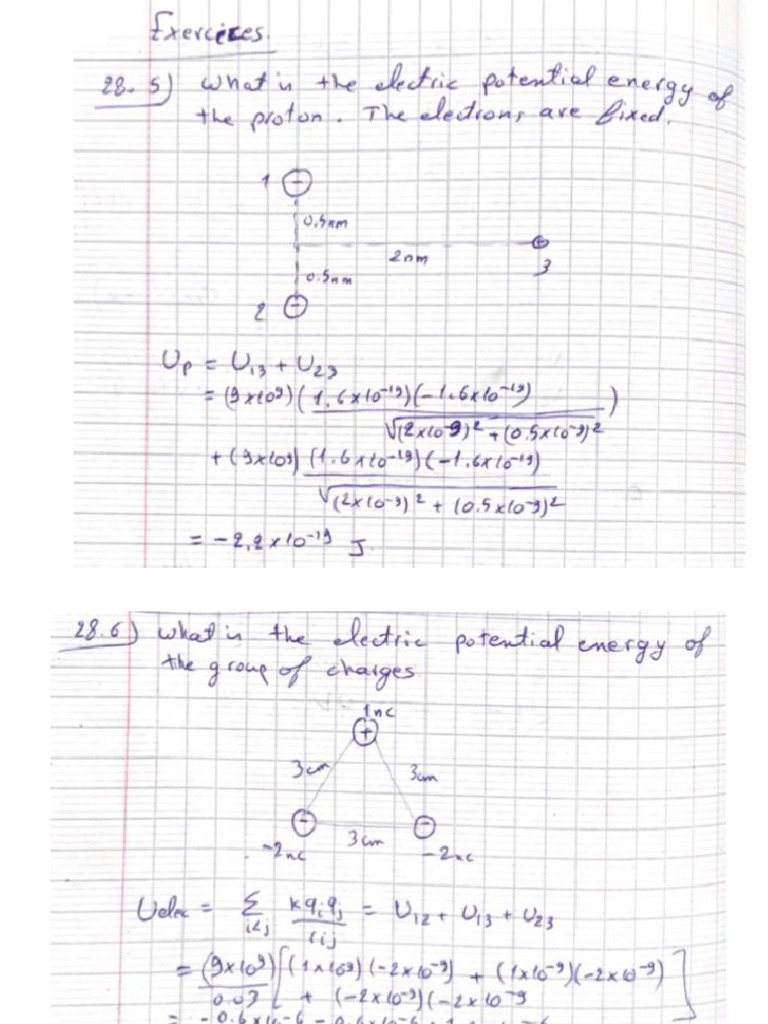 Exercices.
28.5) What is the electric potential energy of
the proton. The electrons are fixed.
1 ⊖
0,5nm
2nm
3
0.5nm
2 ⊖
Up = U13 + U23
= (9x10^9) ( (1.6x10^-19)(-1.6x10^-19) / √((2x10^-9)^2 + (0.5x10^-9)^2) )
+ (9x10^9) (1.6x10^-19)(-1.6x10^-19) / √((2x10^-9)^2 + (0.5x10^-9)^2)
= -2,2x10^-19 J.
28.6) what is the electric potential energy of
the group of charges
1nc
+
3cm 3cm
- -
3cm
-2nc -2nc
Uelec = Σ i<j kqiqj / rij = U12 + U13 + U23
= (9x10^9) / 0.03 [ (1x10^9)(-2x10^-9) + (1x10^-9)(-2x10^-9)
+ (-2x10^-9)(-2x10^-9 ]